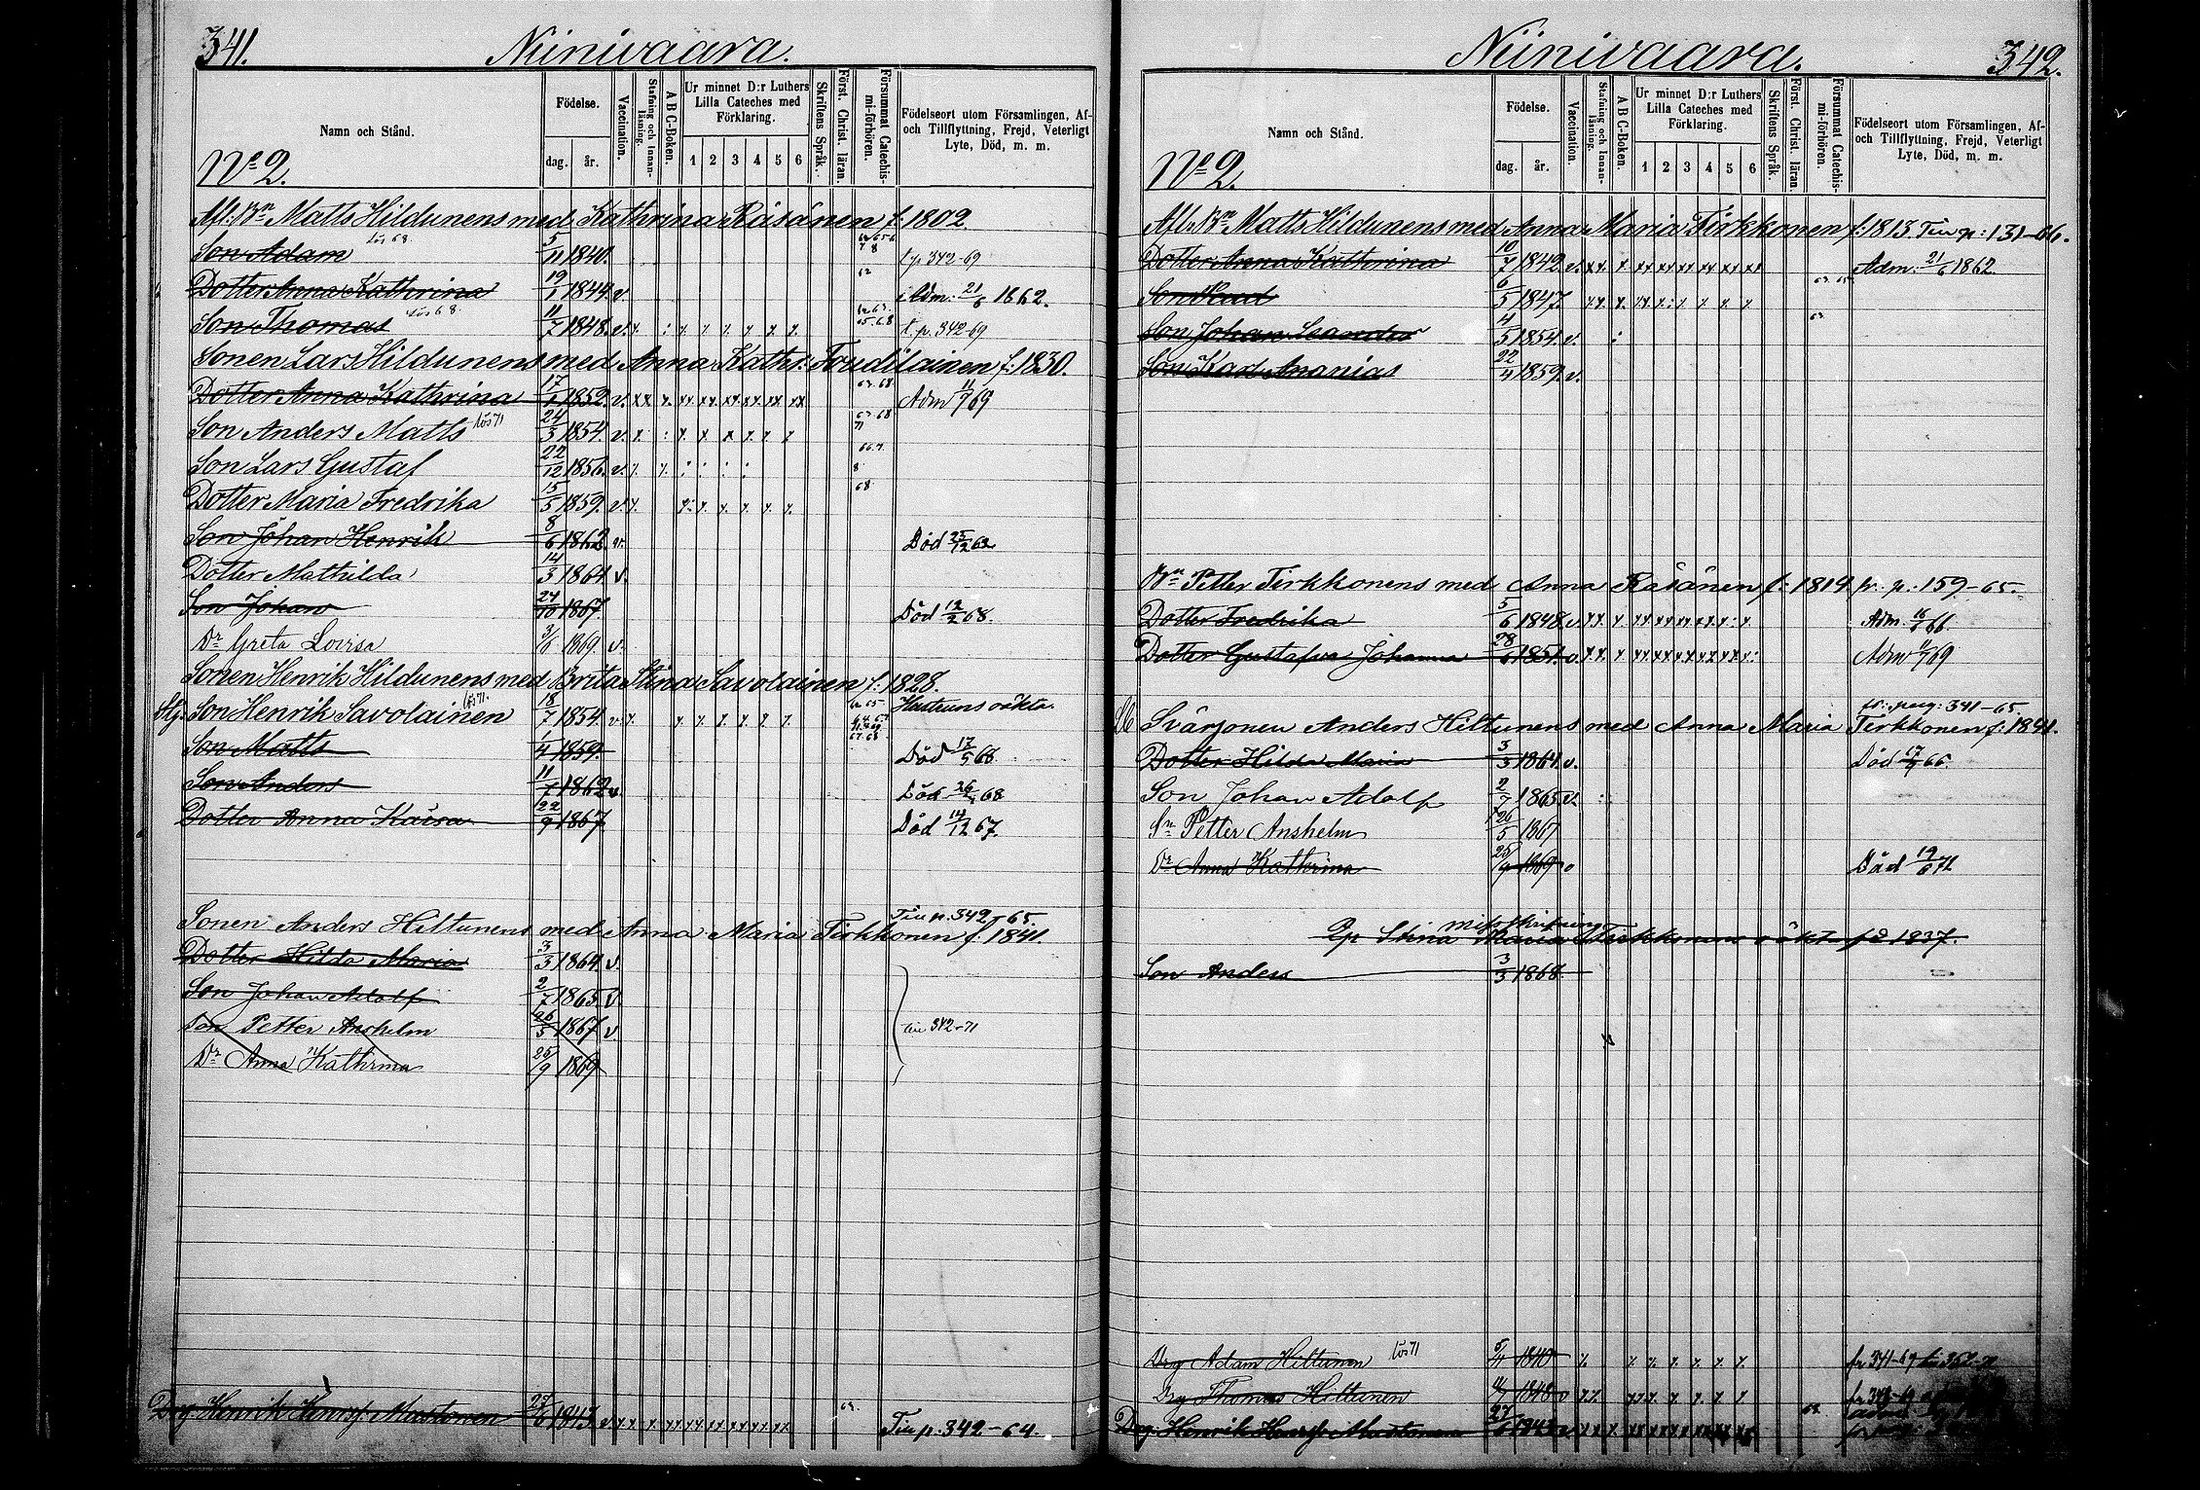 341.
Niinivaara.
Namn och Stånd.
Födelse.
dag. år.
Vaccination.
Stafning och Innanläsning.
A B C-Boken.
Ur minnet D:r Luthers Lilla Cateches med Förklaring.
1 2 3 4 5 6
Skriftens Språk.
Först. Christ. läran.
Försummat Catechismi-förhören.
Födelseort utom Församlingen, Af- och Tillflyttning, Frejd, Veterligt Lyte, Död, m. m.
No 2.
Afl: Bn Matts Hildunens med Kathrina Räsänen f: 1802.
Son Adam lös 68. 5/11 1840. t. p. 342-69
Dotter Anna Kathrina 19/1 1844. v. 62 Adm: 21/6 1862.
Son Thomas lös 68. 11/7 1848. v. t. p. 342-69
Sonen Lars Hildunens med Anna Kathr: Toudilainen f: 1830.
Dotter Anna Kathrina 17/1 1852. v. 67. 68 Adm 11/7 69
Son Anders Matts lös 71 24/3 1854. v. 67. 68 71
Son Lars Gustaf 22/12 1856. v.
Dotter Maria Fredrika 15/5 1859. v. 68
Son Johan Henrik 8/6 1862. v. Död 25/12 62
Dotter Mathilda 14/3 1864. v.
Son Johan 24/10 1867. Död 12/2 68.
Dr Greta Lovisa 3/6 1869. v.
Sonen Henrik Hildunens med Brita Stina Savolainen f: 1828.
Son Henrik Savolainen lös 71. 18/7 1854. v. Hustruns oäkta.
Son Matts 1/4 1859. Död 17/5 68.
Son Anders 11/7 1862 v. Död 26/4 68
Dotter Anna Kaisa 22/9 1867 Död 14/12 67.
Tiu p. 342-65.
Sonen Anders Hiltunens med Anna Maria Tirkkonen f: 1841.
Dotter Hilda Maria 3/3 1864. v.
Son Johan Adolf 2/7 1865. v.
Son Petter Anshelm 26/5 1867. v. tiu 342-71
Dr Anna Kathrina 25/9 1869
Drg Henrik Mustonen 27/6 1843. v. Tiu p. 342-64.
Niinivaara.
342.
Namn och Stånd.
Födelse.
dag. år.
Vaccination.
Stafning och Innanläsning.
A B C-Boken.
Ur minnet D:r Luthers Lilla Cateches med Förklaring.
1 2 3 4 5 6
Skriftens Språk.
Först. Christ. läran.
Försummat Catechismi-förhören.
Födelseort utom Församlingen, Af- och Tillflyttning, Frejd, Veterligt Lyte, Död, m. m.
No 2.
Afl: Bn Matts Hildunens med Anna Maria Tirkkonen f: 1813. Tiu p: 131-66.
Dotter Anna Kathrina 10/7 1842. v. Adm: 21/6 1862.
Son Paul 6/5 1847.
Son Johan Leander 4/5 1854. v.
Son Karl Ananias 22/4 1859. v.
Bn Petter Tirkkonens med Anna Räsänen f: 1814. fr. p.: 159-65.
Dotter Fredrika 5/6 1848. v. Adm. 66
Dotter Gustafva Johanna 28/6 1851. v. Adm 69
fr: pag: 341-65
Svärsonen Anders Hiltunens med Anna Maria Tirkkonen f: 1841.
Dotter Hilda Maria 3/3 1864. v. Död 66.
Son Johan Adolf 2/7 1865. v.
Sn Petter Anshelm 26/5 1867
Dr Anna Kathrina 25/9 1869 Död 19/6 71
Stina Maria Tirkkonens oäkt fö 1837.
Son Anders 3/3 1868
Drg Adam Hiltunen lös 71 5/11 1840 fr 341-69
Drg Thomas Hiltunen 11/7 1848
Drg. Henrik Mustonen 27/6 1843 v